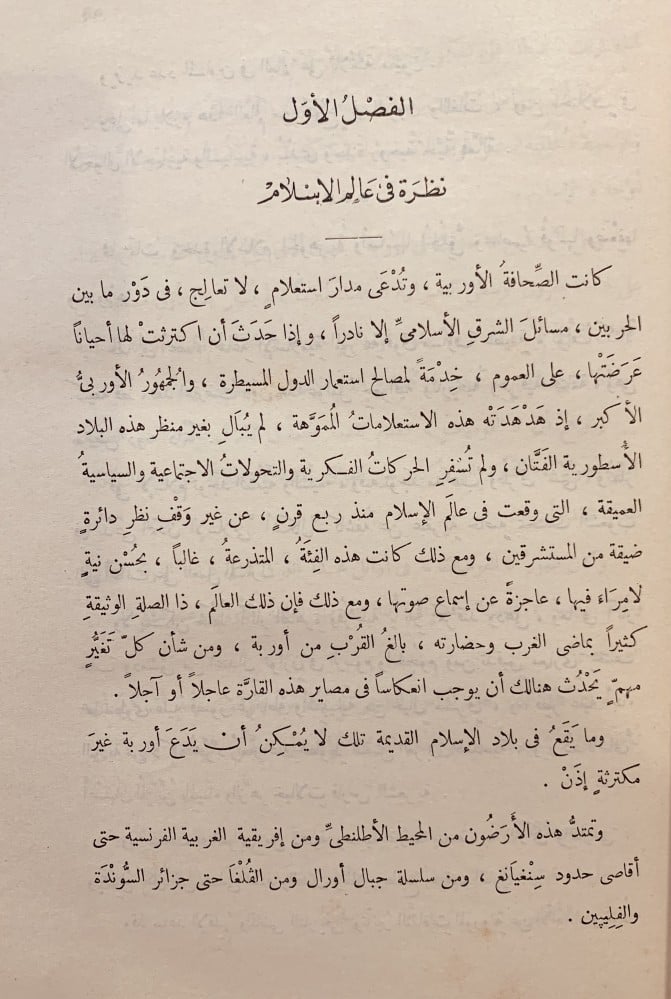 الفصل الأول
نظرة في عالم الإسلام
كانت الصِّحافةُ الأوربية ، وتُدْعَى مدارَ استعلامٍ ، لا تعالِج ، فى دَوْر ما بين
الحربين ، مسائلَ الشرقِ الأسلامىِّ إلا نادراً ، وإذا حَدَثَ أن اكترثتْ لها أحياناً
عَرَضَتْها ، على العموم ، خِدْمَةً لمصالح استعمار الدول المسيطرة ، والجُمهُورُ الأوربىُّ
الأكبر ، إذ هَدْهَدَتْه هذه الاستعلاماتُ المُمَوَّهة ، لم يُبَالِ بغير منظر هذه البلاد
الأُسطورية الفَتَّان ، ولم تُسْفِرِ الحركاتُ الفكرية والتحولاتُ الاجتماعية والسياسيةُ
العميقة ، التى وقعت فى عالَم الإسلام منذ ربع قرنٍ ، عن غير وَقْفِ نظرِ دائرةٍ
ضيقة من المستشرقين ، ومع ذلك كانت هذه الفِئَةُ ، المتذرعةُ ، غالباً ، بحُسْن نيةٍ
لامِرَاء فيها ، عاجزةً عن إسماع صوتها ، ومع ذلك فإن ذلك العالَم ، ذا الصلةِ الوثيقةِ
كثيراً بماضى الغرب وحضارته ، بالغُ القُرْبِ من أوربة ، ومن شأن كلّ تَغَيُّرٍ
مهمّ يَحْدُث هنالك أن يوجب انعكاساً فى مصاير هذه القارَّة عاجلاً أو آجلاً .
وما يَقَعُ فى بلاد الإسلام القديمة تلك لا يُمْكِنُ أن يَدَعَ أوربة غيرَ
مكترثةٍ إذَنْ .
وتمتدُّ هذه الأَرَضُون من المحيط الأطلنطىِّ ومن إفريقية الغربية الفرنسية حتى
أقاصى حدود سِنْغيَانغ ، ومن سلسلة جبال أورال ومن الڤُلْغَا حتى جزائر السُّونْدَة
والفِلِپين .